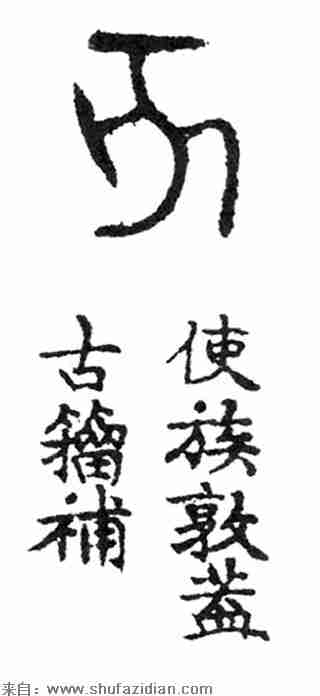 使族敦蓋
古籀補
来自：www.shufazidian.com